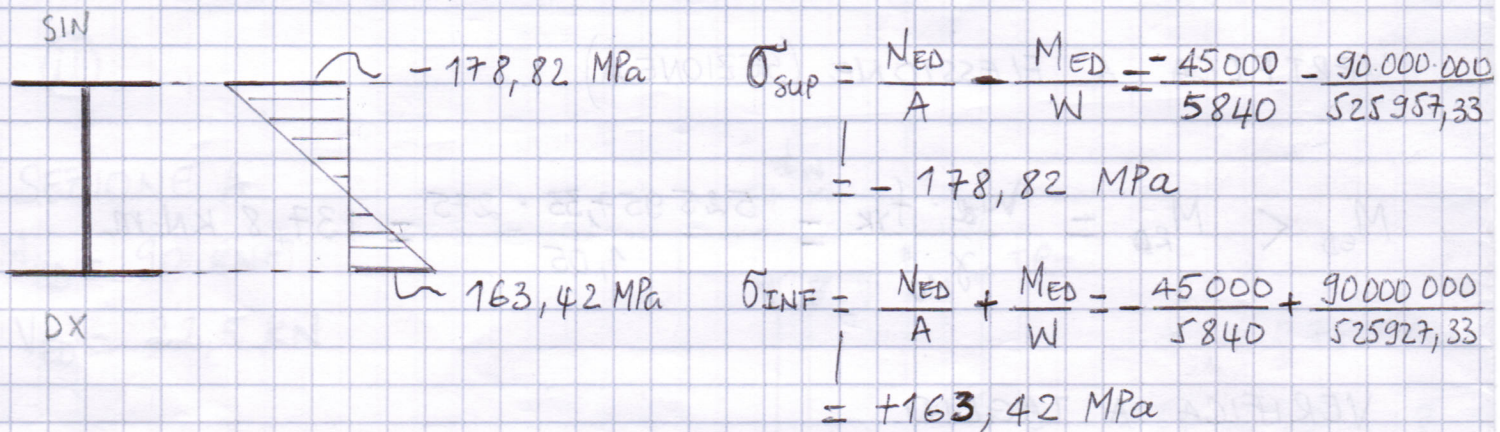 SIN
- 178,82 MPa
σsup = NED/A - MED/W = - 45000/5840 - 90.000.000/525957,33
= - 178,82 MPa
163,42 MPa
σINF = NED/A + MED/W = - 45000/5840 + 90000000/525927,33
DX
= +163,42 MPa